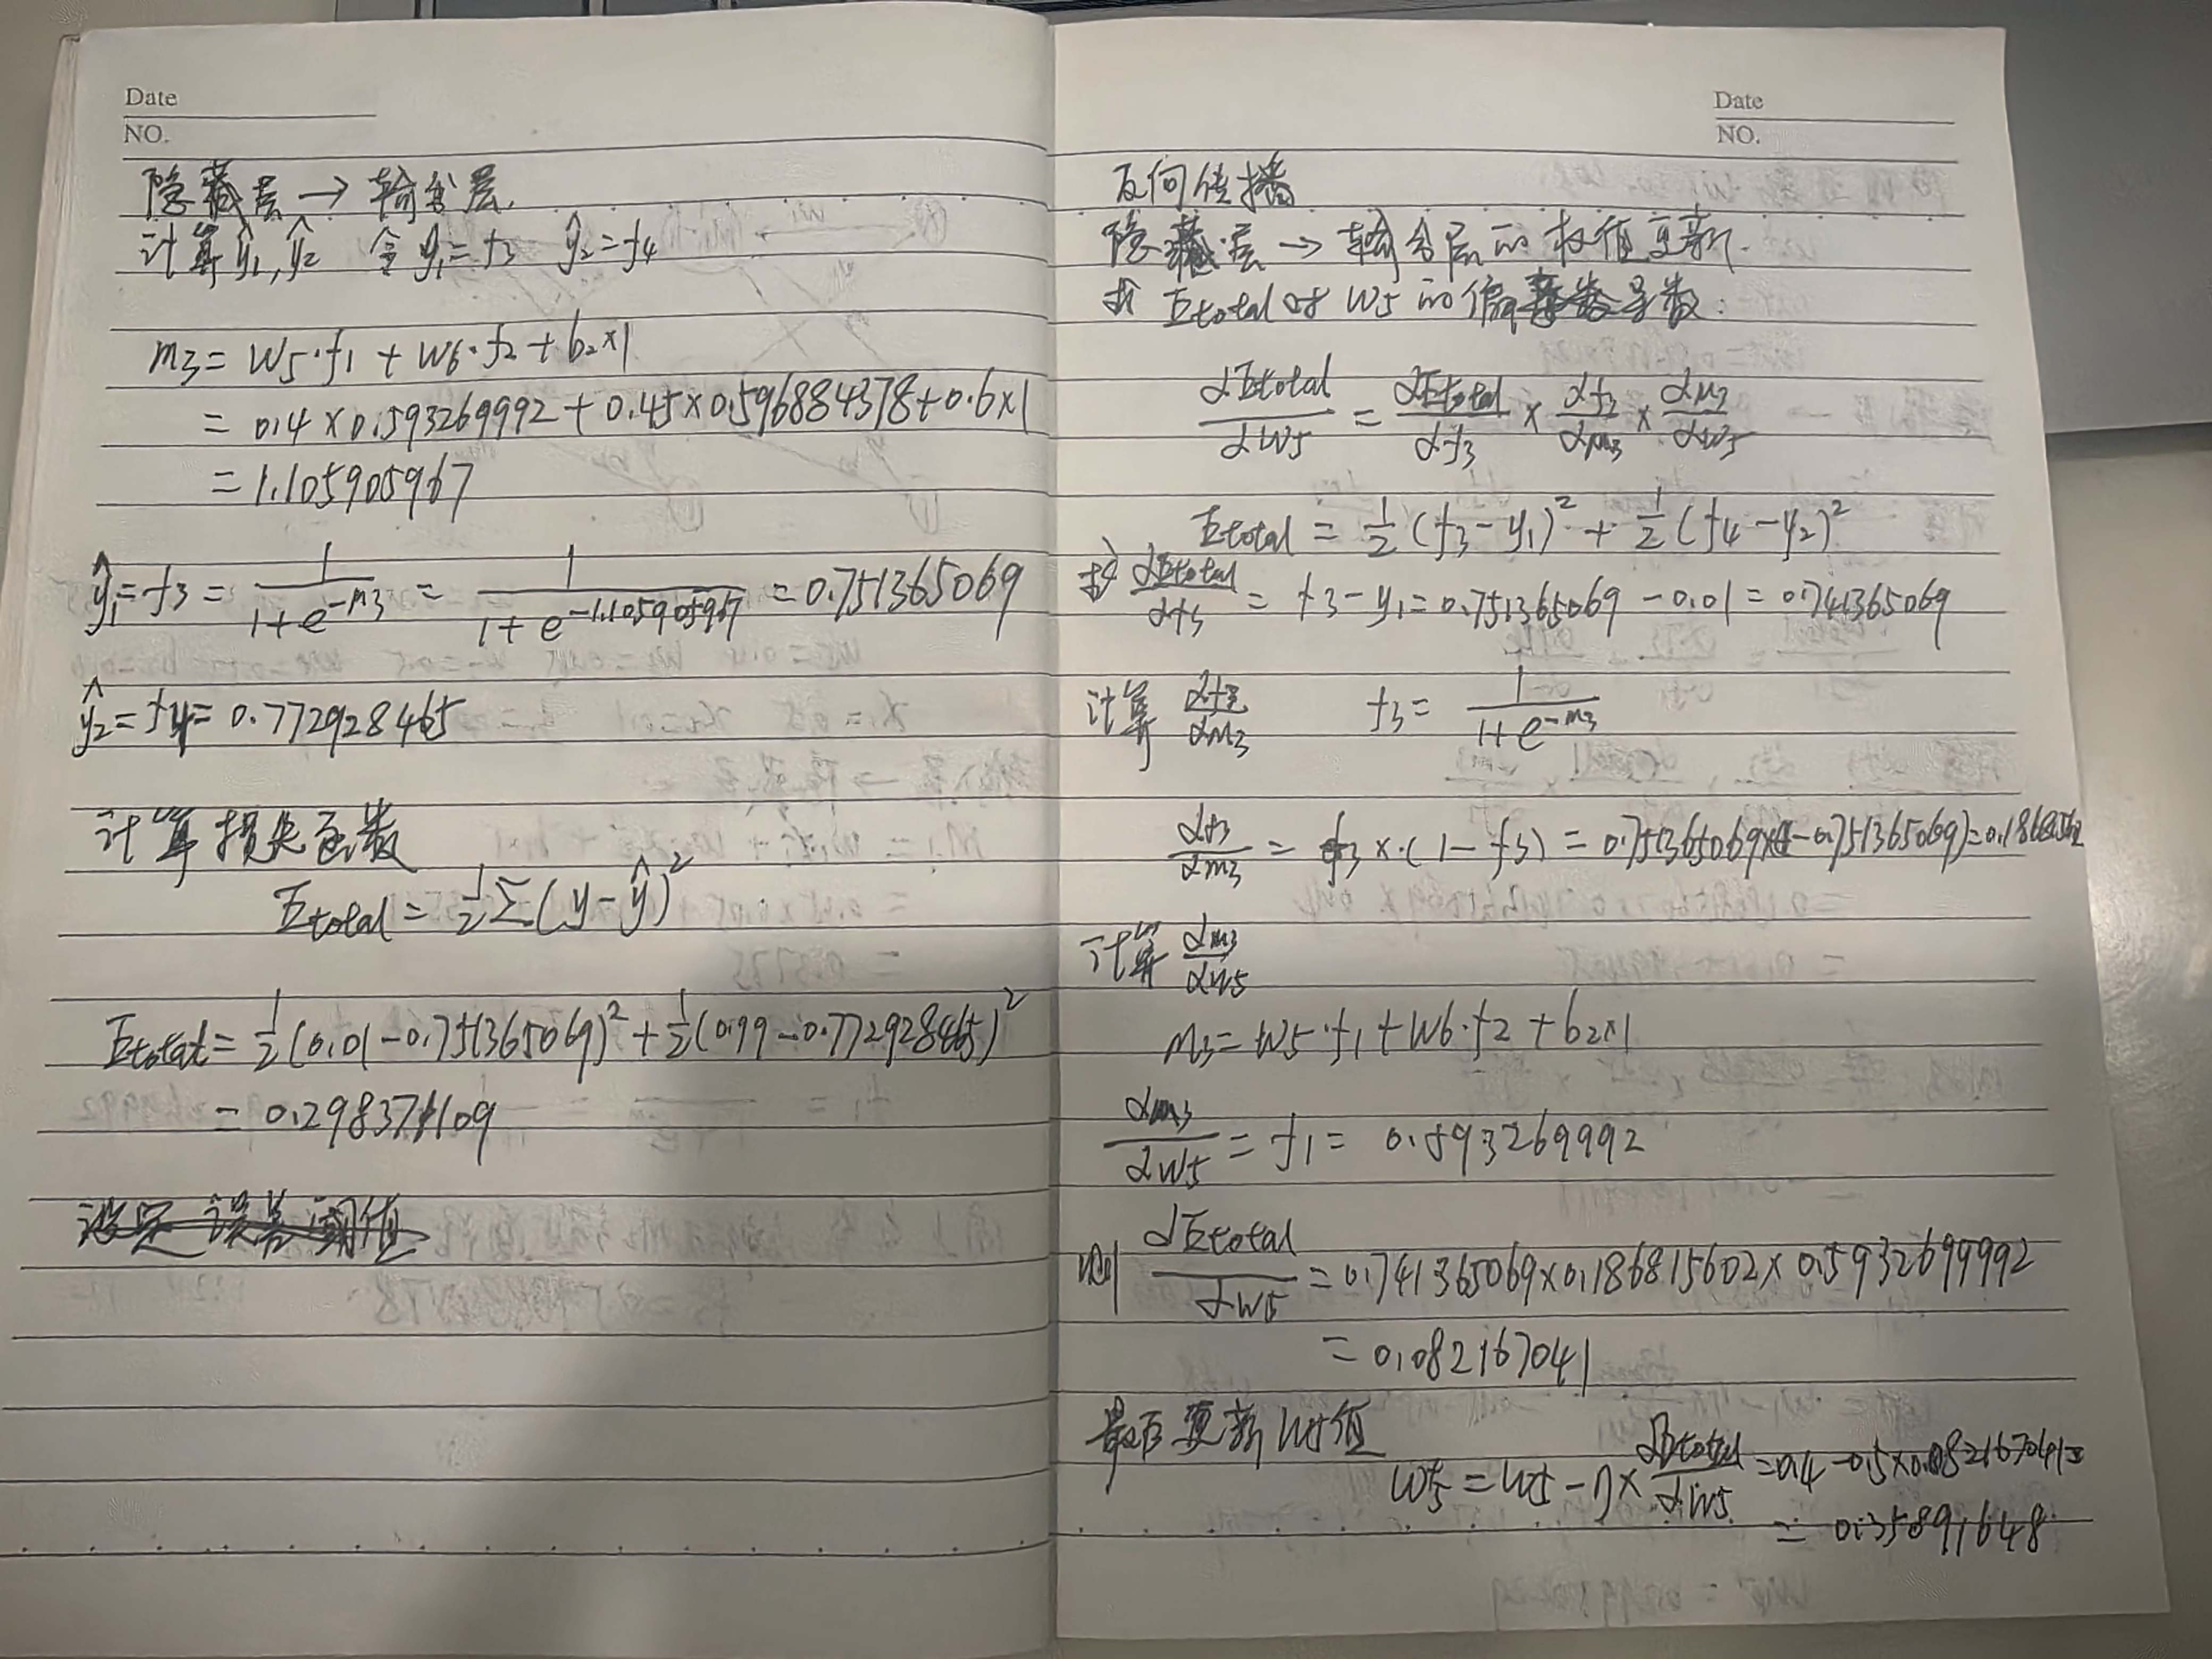 Date
NO.
隐藏层 → 输出层.
计算ŷ1, ŷ2 令ŷ1=f3 ŷ2=f4
m3 = w5·f1 + w6·f2 + b2×1
= 0.4 × 0.593269992 + 0.45×0.596884378+0.6×1
= 1.105905967
ŷ1=f3 = 1/(1+e^-m3) = 1/(1+e^-1.105905967) = 0.751365069
ŷ2=f4= 0.772928465
计算损失函数
Etotal = 1/2 Σ(y-ŷ)²
Etotal = 1/2(0.01-0.751365069)²+1/2(0.99-0.772928465)²
= 0.298371109
Date
NO.
反向传播
隐藏层 → 输出层的权值更新.
求 Etotal 对 w5 的偏导数:
∂Etotal/∂w5 = ∂Etotal/∂f3 × ∂f3/∂m3 × ∂m3/∂w5
Etotal = 1/2(f3-y1)² + 1/2(f4-y2)²
∂Etotal/∂f3 = f3-y1=0.751365069-0.01=0.741365069
计算 ∂f3/∂m3 f3= 1/(1+e^-m3)
∂f3/∂m3 = f3×·(1-f3) = 0.751365069×(1-0.751365069)=0.186815602
计算 ∂m3/∂w5
m3=w5·f1+w6·f2+b2×1
∂m3/∂w5 = f1= 0.593269992
则 ∂Etotal/∂w5 = 0.741365069×0.186815602×0.5932699992
= 0.082167041
最后更新w5值
w5⁺=w5-η×∂Etotal/∂w5=0.4-0.5×0.082167041=
= 0.35891648